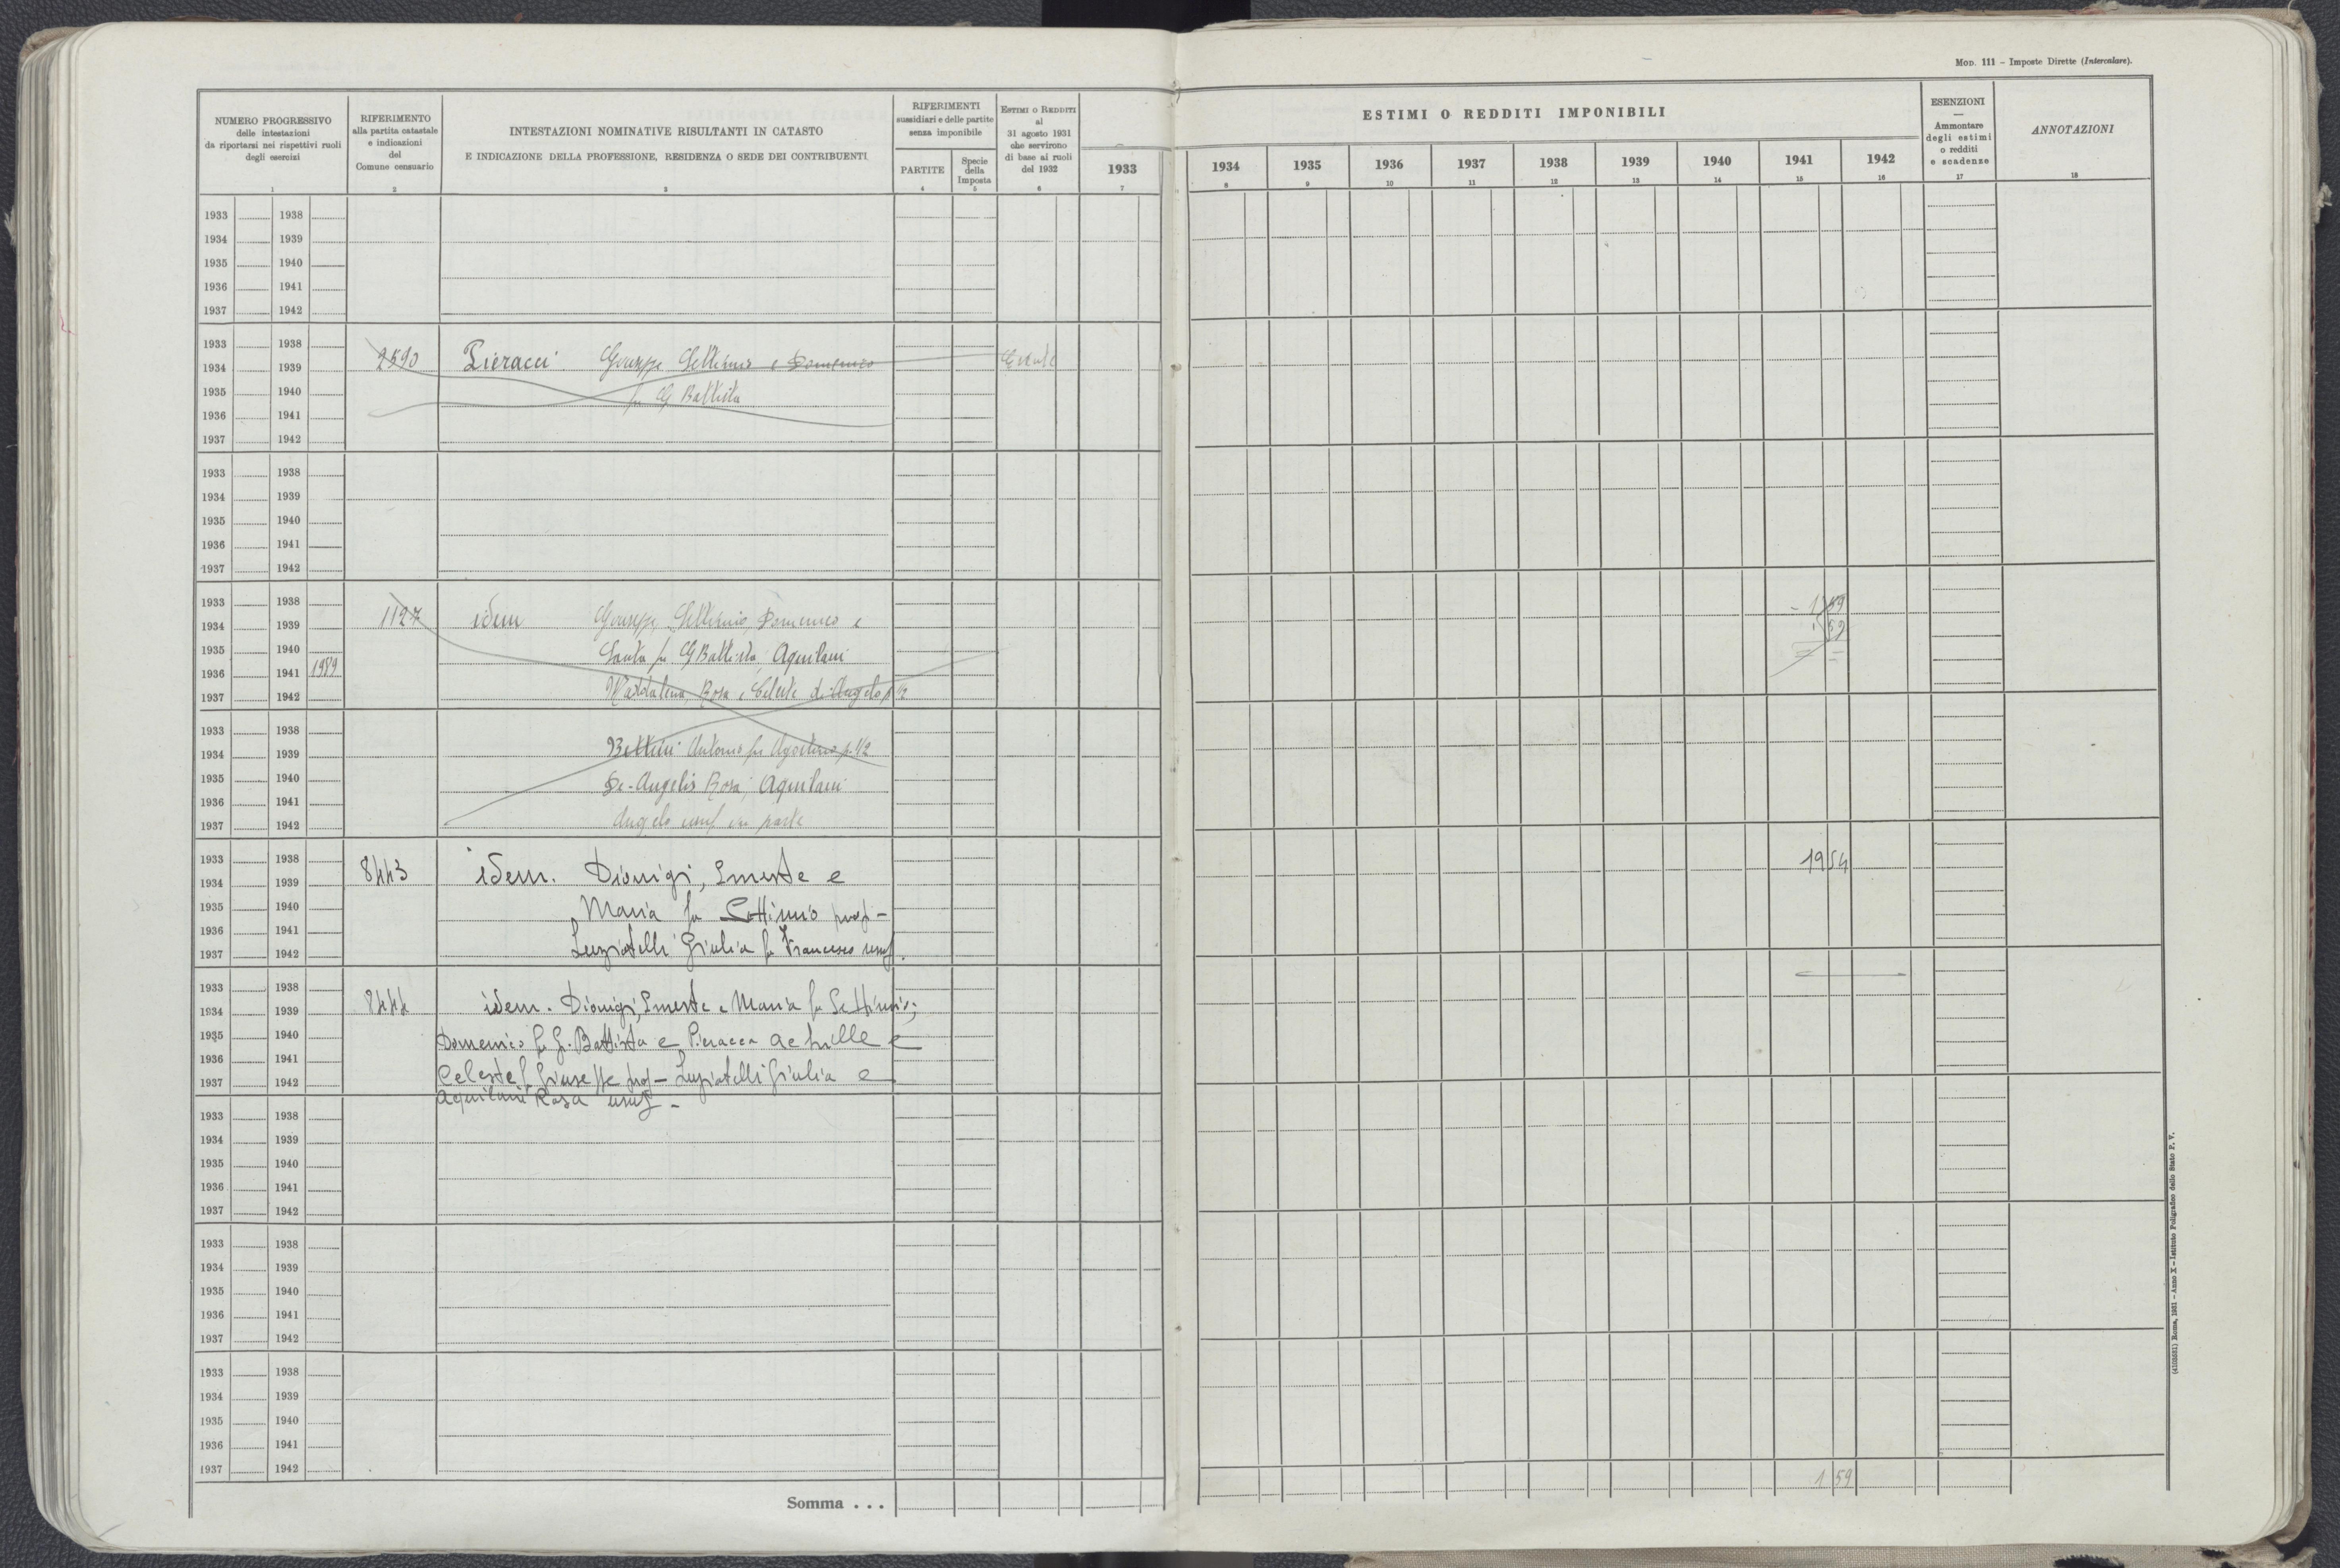 MOD. 111 – Imposte Dirette (Intercalare).
NUMERO PROGRESSIVO
delle intestazioni
da riportarsi nei rispettivi ruoli
degli esercizi
1
RIFERIMENTO
alla partita catastale
e indicazioni
del
Comune censuario
2
INTESTAZIONI NOMINATIVE RISULTANTI IN CATASTO
E INDICAZIONE DELLA PROFESSIONE, RESIDENZA O SEDE DEI CONTRIBUENTI
3
RIFERIMENTI
sussidiari e delle partite
senza imponibile
PARTITE
4
Specie
della
Imposta
5
ESTIMI O REDDITI
al
31 agosto 1931
che servirono
di base ai ruoli
del 1932
6
1933
7
ESTIMI O REDDITI IMPONIBILI
1934 1935 1936 1937 1938 1939 1940 1941 1942
8 9 10 11 12 13 14 15 16
ESENZIONI
—
Ammontare
degli estimi
o redditi
e scadenze
17
ANNOTAZIONI
18
1933 1938
1934 1939
1935 1940
1936 1941
1937 1942
1933 1938
1934 1939 2590 Pieracci Giuseppe Settimio e Domenico
1935 1940 fu G Battista
1936 1941
1937 1942
1933 1938
1934 1939
1935 1940
1936 1941
1937 1942
1933 1938
1934 1939 1127 idem Giuseppe, Settimio, Domenico e
1935 1940 Santa fu GBattista; Aquilani
1936 1941 1989
1937 1942 Maddalena, Rosa e Celeste di Angelo p 1/2
1933 1938
1934 1939 Bettini Antonio fu Agostino p. 1/2
1935 1940 De-Angelis Rosa; Aquilani
1936 1941
1937 1942 Angelo usuf in parte
1933 1938 8443 idem. Dionigi, Ernesta e 19 54
1934 1939
1935 1940 Maria fu Settimio prop –
1936 1941
1937 1942 Luziatelli Giulia fu Francesco usuf.
1933 1938
1934 1939 8444 idem. Dionigi, Ernesta e Maria fu Settimio;
1935 1940 Domenico fu G. Battista e Pieracci Achille e
1936 1941
1937 1942 Celeste fu Giuseppe prop – Luziatelli Giulia e
Aquilani Rosa usuf –
1933 1938
1934 1939
1935 1940
1936 1941
1937 1942
1933 1938
1934 1939
1935 1940
1936 1941
1937 1942
1933 1938
1934 1939
1935 1940
1936 1941
1937 1942
1 59
Somma . . .
(4103531) Roma, 1931 – Anno X – Istituto Poligrafico dello Stato P. V.